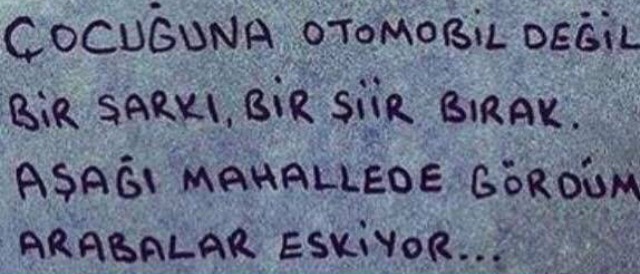 ÇOCUĞUNA OTOMOBİL DEĞİL
BİR ŞARKI, BİR ŞİİR BIRAK.
AŞAĞI MAHALLEDE GÖRDÜM
ARABALAR ESKİYOR...